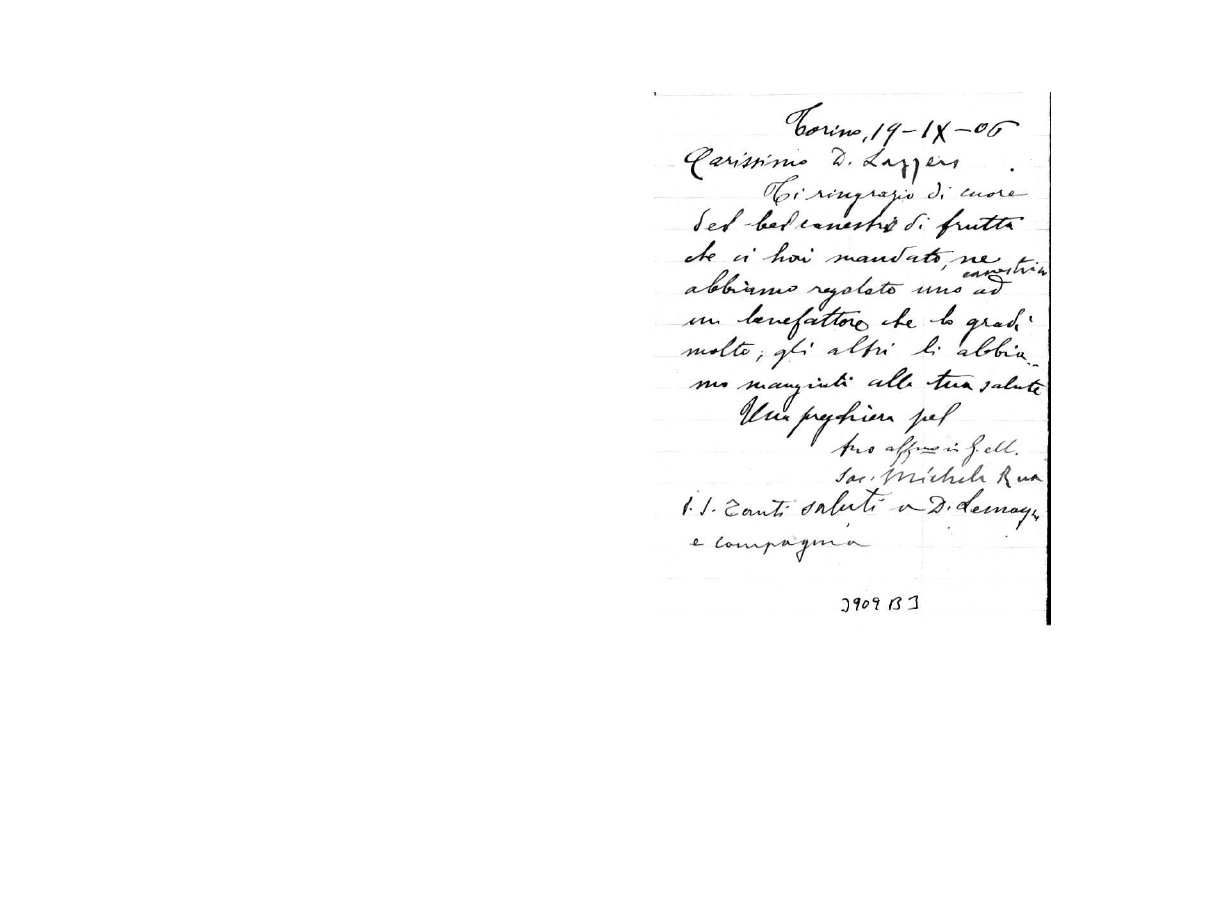 Torino, 19-IX-06
Carissimo D. Lazzero
Ti ringrazio di cuore
del bel canestro di frutta
che ci hai mandato, ne
abbiamo regalato uno ad
un benefattore che lo gradì
molto; gli altri li abbia
mo mangiati alla tua salute
Una preghiera pel
tuo affmo in G. e M.
Sac. Michele Rua
P.S. Tanti saluti a D.
e compagnia
3909 B 3